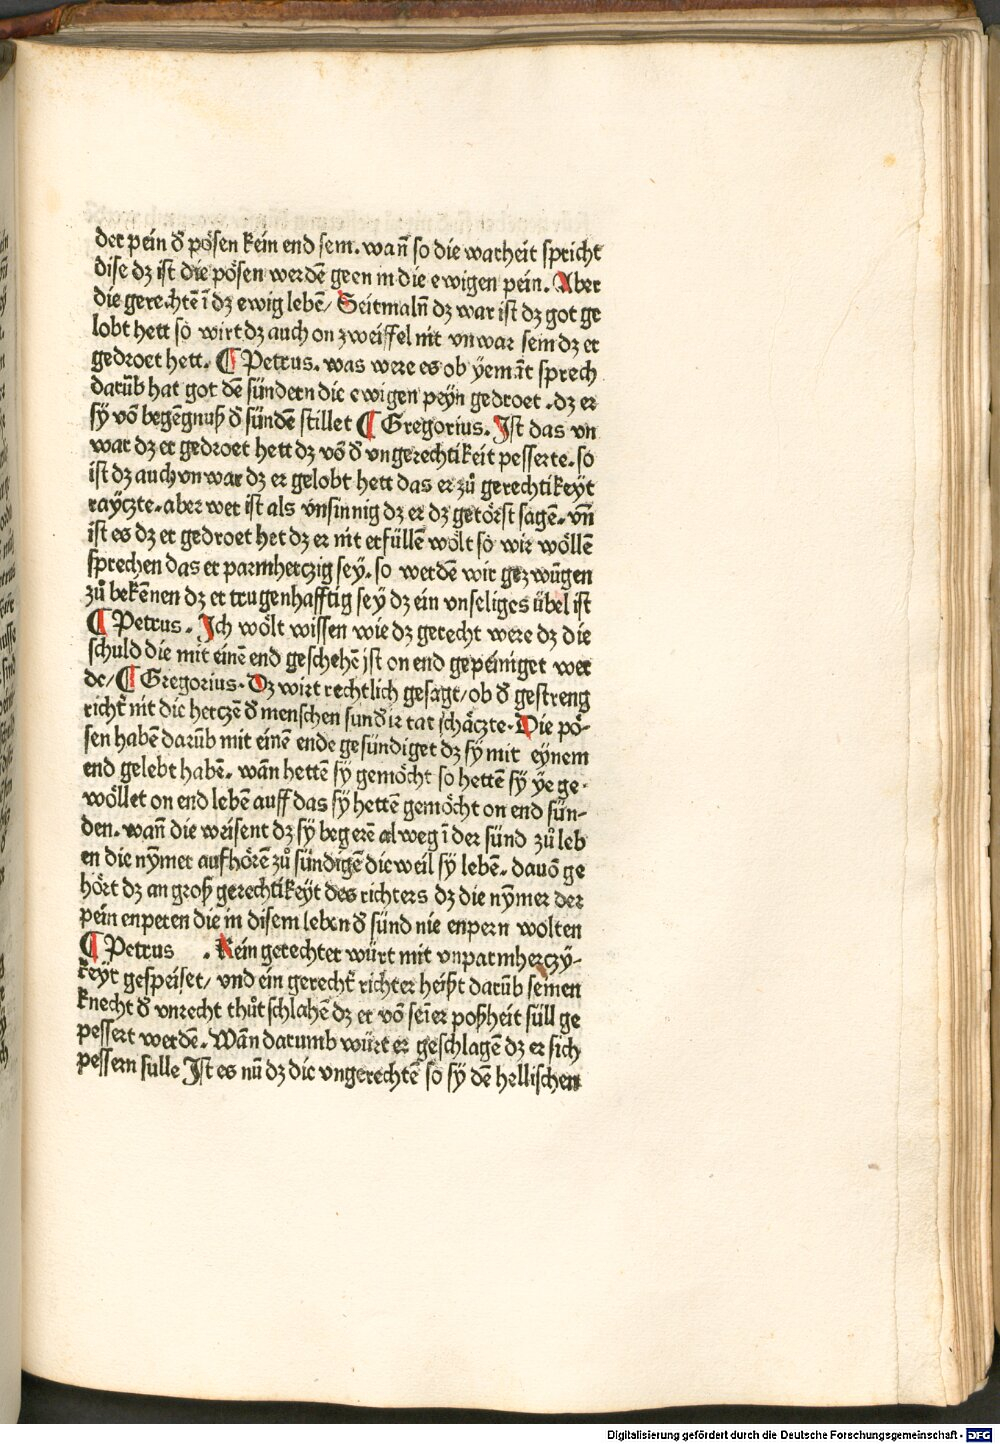 der pein d̄ pösen kein end sem. wan̄ so die warheit spricht
dise dz ist die pösen werdē geen in die ewigen pein. Aber
die gerechtē ī dz ewig lebē/ Seitmaln̄ dz war ist dz got ge
lobt hett so wirt dz auch on zweiffel nit vnwar sein dz er
gedroet hett. ¶ Petrus. was were es ob yemāt sprech
darūb hat got dē sündern die ewigen peyn gedroet. dz er
sÿ vō begēgnuß d̄ sündē stillet ¶ Gregorius. Ist das vn
war dz er gedroet hett dz vō d̄ vngerechtikeit pesserte. so
ist dz auch vnwar dz er gelobt hett das er zů gerechtikeyt
rayczte. aber wer ist als vnsinnig dz er dz getörst sagē. vn̄
ist es dz er gedroet het dz er nit erfüllē wölt so wir wöllē
sprechen das er parmherczig sey. so werdē wir gezwūgen
zů bekēnen dz er trugenhafftig sey dz ein vnseliges übel ist
¶ Petrus. Ich wölt wissen wie dz gerecht were dz die
schuld die mit einē end geschehē ist on end gepeiniget wer
de/ ¶ Gregorius. Dz wirt rechtlich gesagt/ ob d̄ gestreng
richt̄ nit die herczē d̄ menschen sund̄ ir tat schäczte. Die pö-
sen habē darūb mit einē ende gesündiget dz sÿ mit eynem
end gelebt habē. wān hettē sÿ gemöcht so hettē sÿ ye ge-
wöllet on end lebē auff das sÿ hettē gemöcht on end sün-
den. wan̄ die weisent dz sÿ begerē alweg ī der sünd zů leb
en die nȳmer aufhörē zů sündigē dieweil sÿ lebē. dauō ge
hört dz an groß gerechtikeyt des richters dz die nȳmer der
pein enperen die in disem leben d̄ sünd nie enpern wolten
¶ Petrus . Kein gerechter würt mit vnparmherczÿ-
keyt gespeiset/ vnd ein gerecht̄ richter heißt darūb seinen
knecht d̄ vnrecht thůt schlahē dz er vō seīer poßheit süll ge
pessert werdē. Wān darumb würt er geschlagē dz er sich
pessern sulle Ist es nū dz die vngerechtē so sÿ dē hellischen
Digitalisierung gefördert durch die Deutsche Forschungsgemeinschaft - DFG